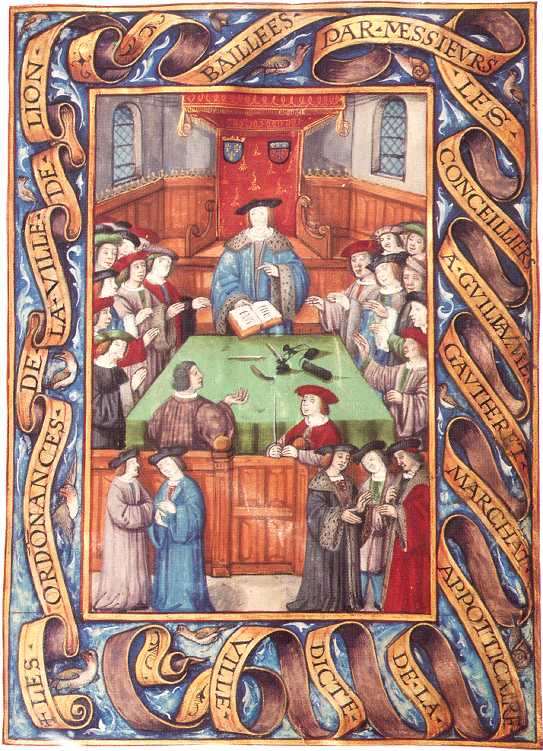 LES
ORDŌNANCES·
DE·
LA·VILLE·
DE·
LION
BAILLEES
PAR·MESSIEVRS
LES·
CONCEILLIERS
A·GVILLAVME
GAVTHERET
MARCHĀT
APPOTTICAIRE
DE·LA·
DICTE·
VILLE